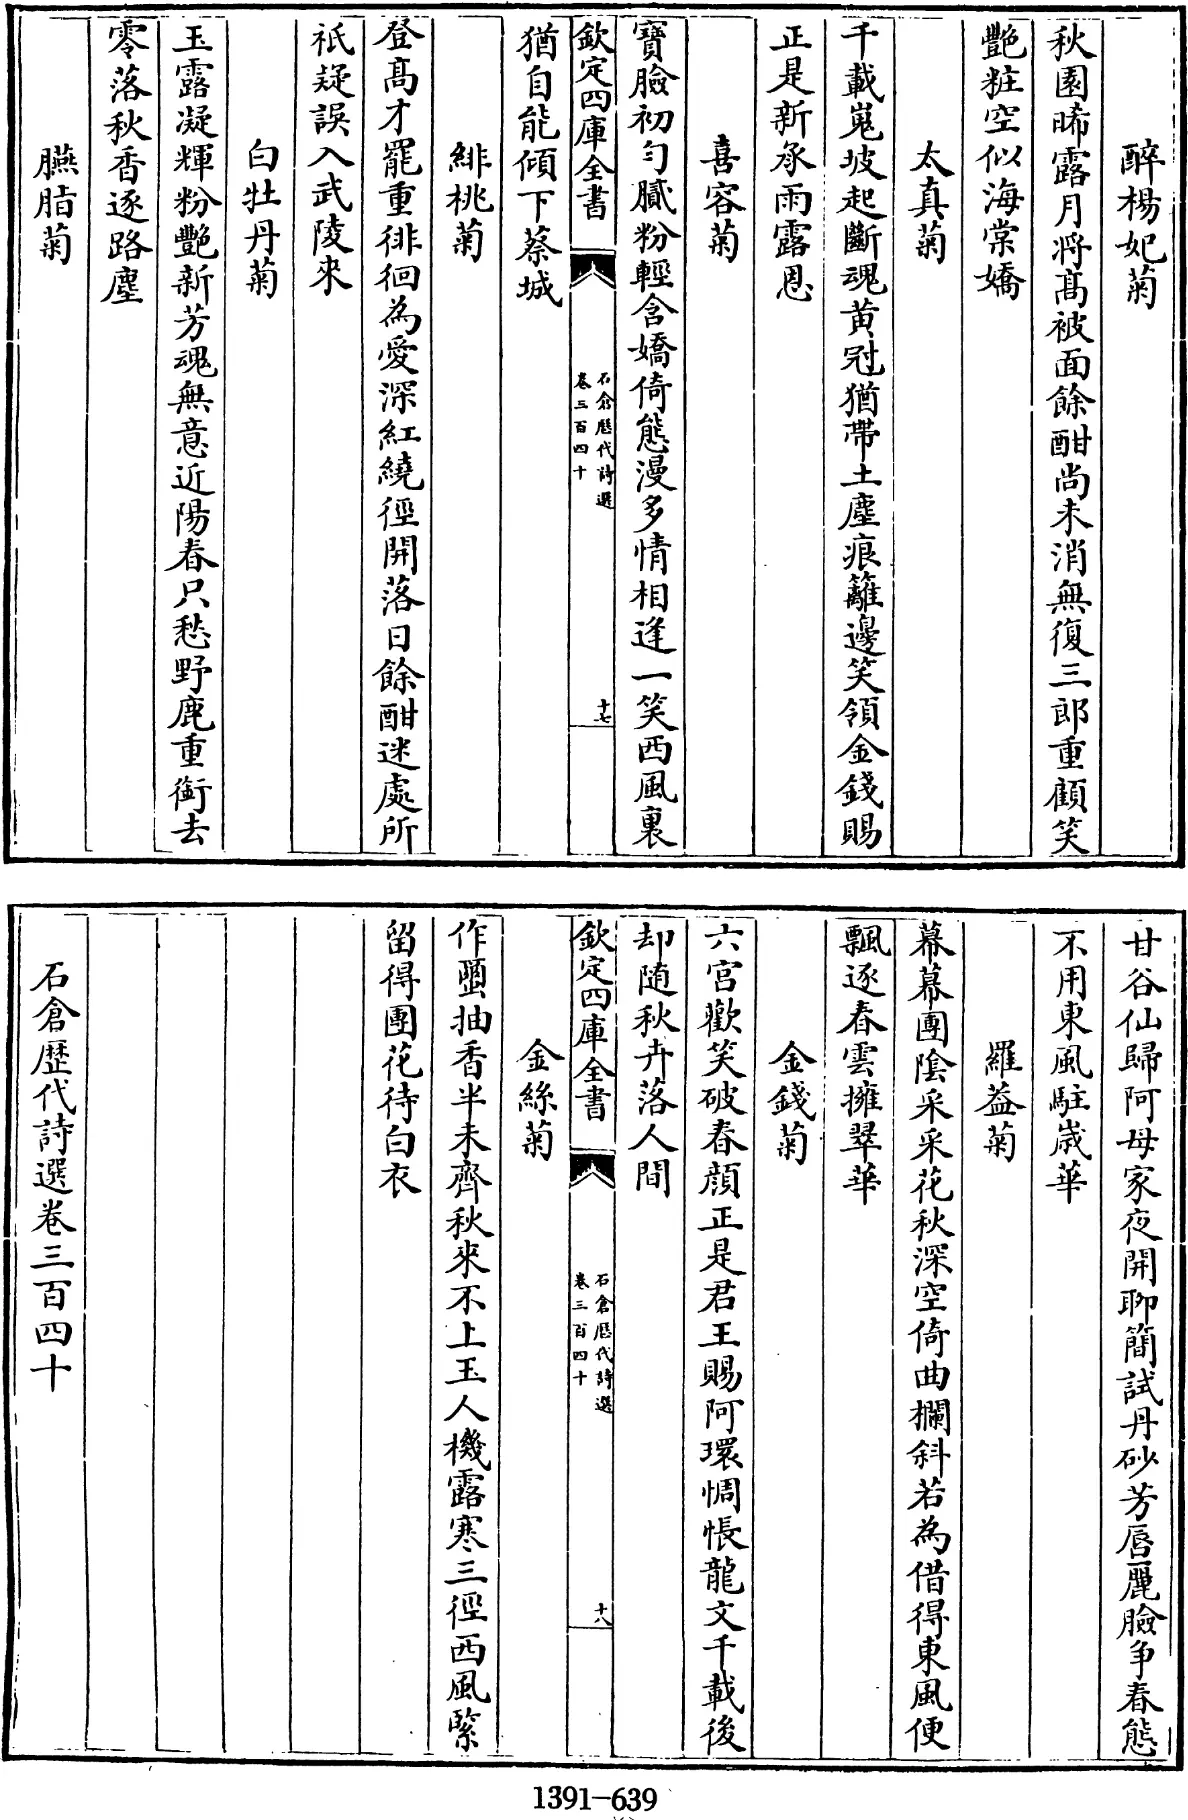 醉楊妃菊
秋園晞露月將髙被面餘酣尚未消無復三郎重顧笑
艷粧空似海棠嬌
太真菊
千載嵬坡起斷魂黄冠猶帶土塵痕籬邊笑領金錢賜
正是新承雨露恩
喜容菊
寶臉初勻膩粉輕含嬌倚態漫多情相逢一笑西風裏
欽定四庫全書
石倉歴代詩選
卷三百四十
十七
猶自能傾下蔡城
緋桃菊
登髙才罷重徘徊為愛深紅繞徑開落日餘酣迷處所
祇疑誤入武陵來
白牡丹菊
玉露凝輝粉艷新芳魂無意近陽春只愁野鹿重銜去
零落秋香逐路塵
臙脂菊
甘谷仙歸阿母家夜開聊簡試丹砂芳唇麗臉争春態
不用東風駐歲華
羅葢菊
幕幕團陰采采花秋深空倚曲欄斜若為借得東風便
飄逐春雲擁翠華
金錢菊
六宫歡笑破春顔正是君王賜阿環惆悵龍文千載後
却随秋卉落人間
欽定四庫全書
石倉歴代詩選
卷三百四十
十八
金絲菊
作蠒抽香半未齊秋來不上玉人機露寒三徑西風緊
留得團花待白衣
石倉歴代詩選卷三百四十
1391-639